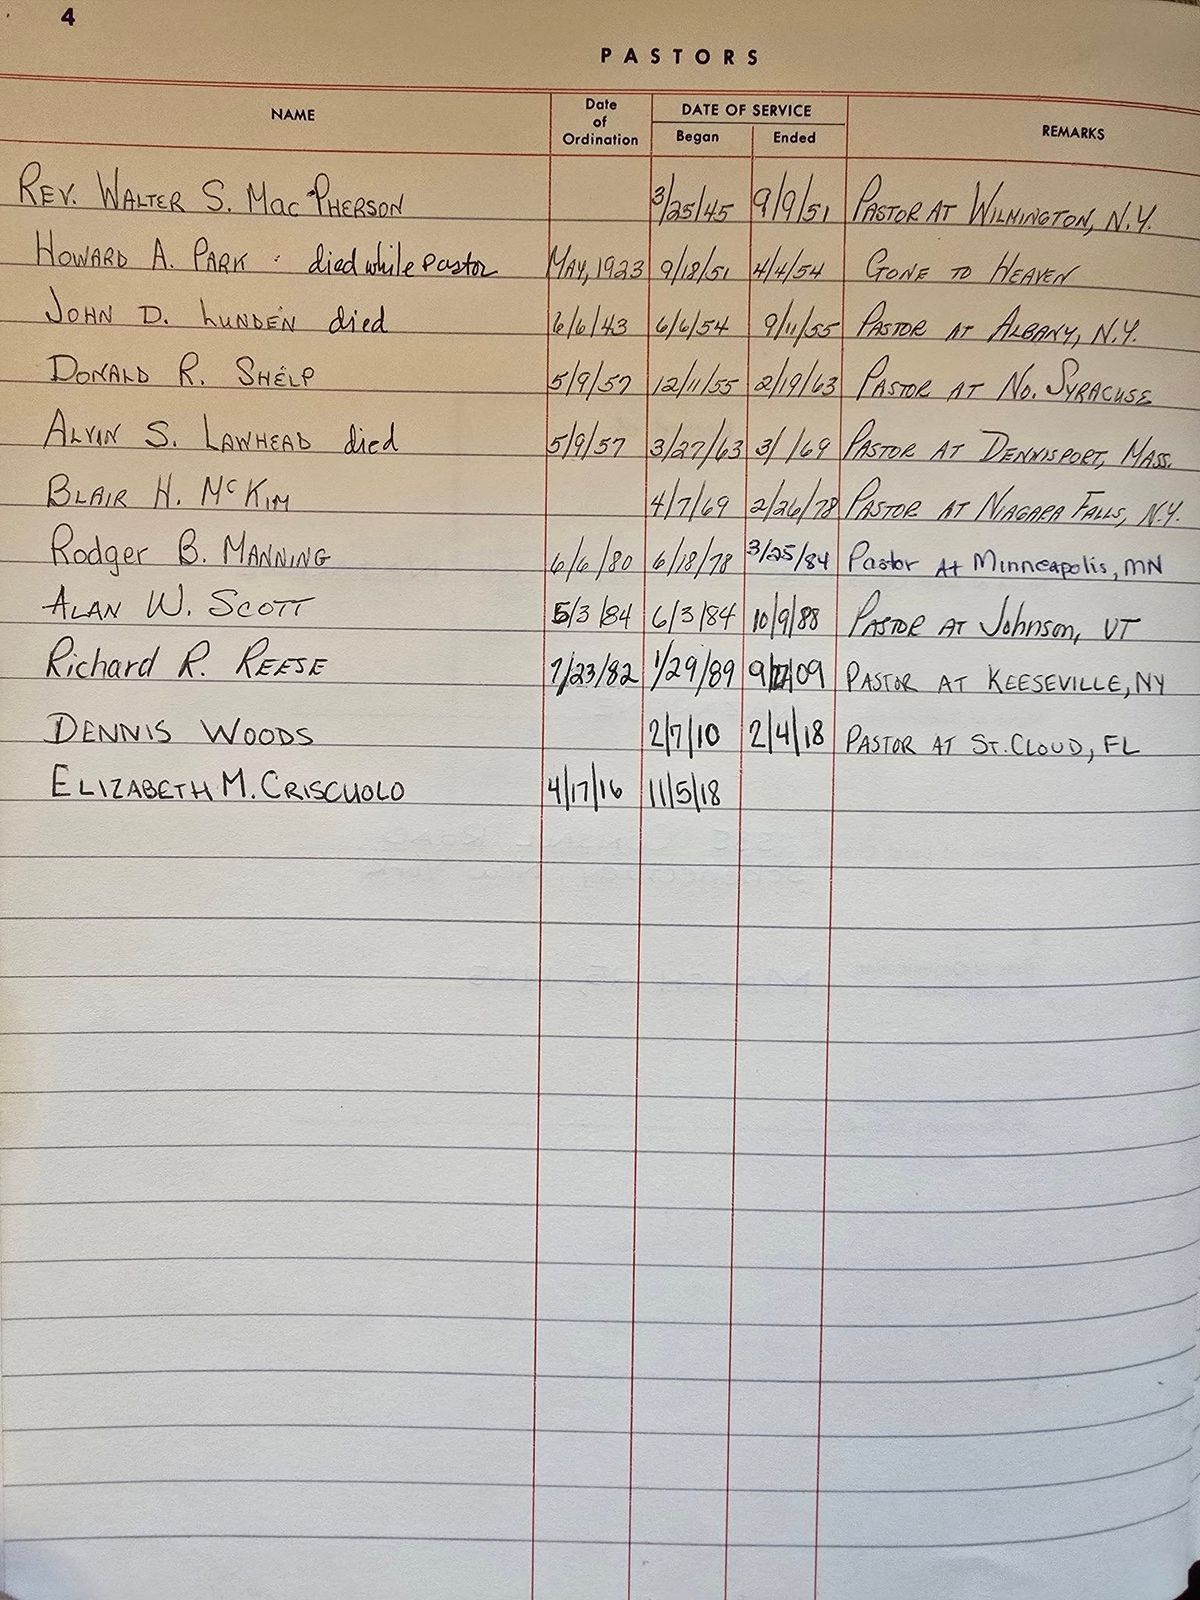 4
PASTORS
NAME Date of Ordination DATE OF SERVICE Began Ended REMARKS
REV. WALTER S. MAC PHERSON 3/25/45 9/9/51 PASTOR AT WILMINGTON, N.Y.
HOWARD A. PARK : died while pastor MAY, 1923 9/18/51 4/4/54 GONE TO HEAVEN
JOHN D. LUNDEN died 6/6/43 6/6/54 9/11/55 PASTOR AT ALBANY, N.Y.
DONALD R. SHELP 5/9/57 12/11/55 2/19/63 PASTOR AT NO. SYRACUSE
ALVIN S. LAWHEAD died 5/9/57 3/27/63 3/ /69 PASTOR AT DENNISPORT, MASS.
BLAIR H. McKIM 4/7/69 2/26/78 PASTOR AT NIAGARA FALLS, N.Y.
Rodger B. MANNING 6/6/80 6/18/78 3/25/84 Pastor At Minneapolis, MN
ALAN W. SCOTT 5/3/84 6/3/84 10/9/88 PASTOR AT Johnson, VT
Richard R. REESE 7/23/82 1/29/89 9/ /09 PASTOR AT KEESEVILLE, NY
DENNIS WOODS 2/7/10 2/4/18 PASTOR AT ST. CLOUD, FL
ELIZABETH M. CRISCUOLO 4/17/16 11/5/18